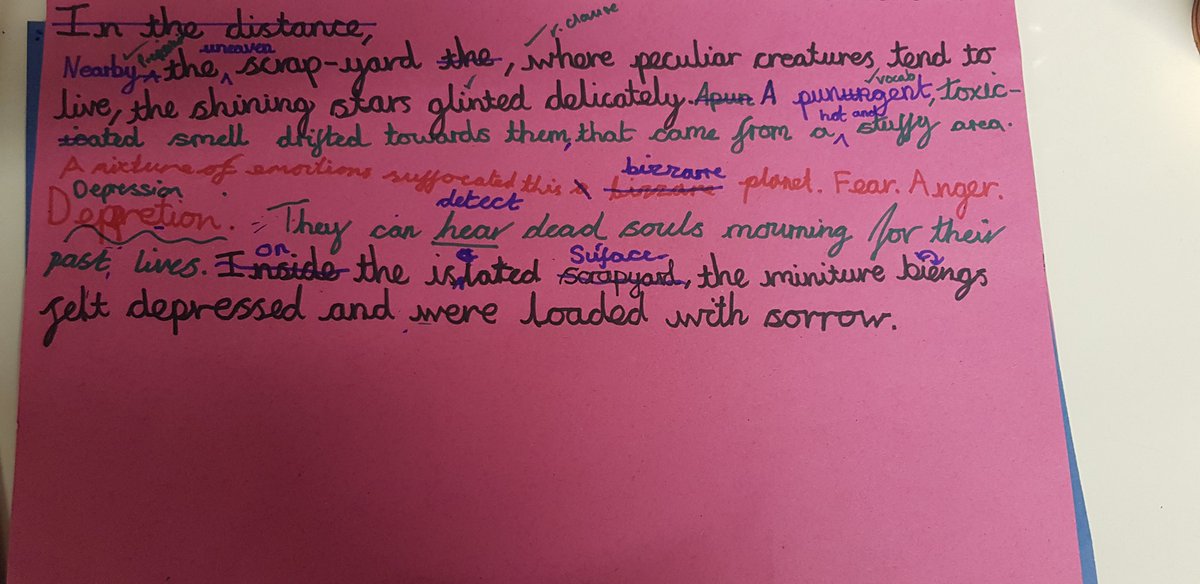 In the distance,
✓ r. clause
Nearby the uneaven scrap-yard the, where peculiar creatures tend to
✓ vocab
live, the shining stars glinted delicately. Apun A punurgent, toxic-
icated smell drifted towards them, that came from a hot and stuffy area.
A mixture of emoitions suffocated this bizzare bizzare planet. Fear. Anger.
Depression
Depretion. They can hear detect dead souls mourning for their
past lives. Inside On the isolated scrapyard Suface, the miniture biengs
felt depressed and were loaded with sorrow.